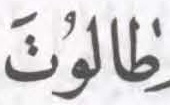 طَالُوُتَ